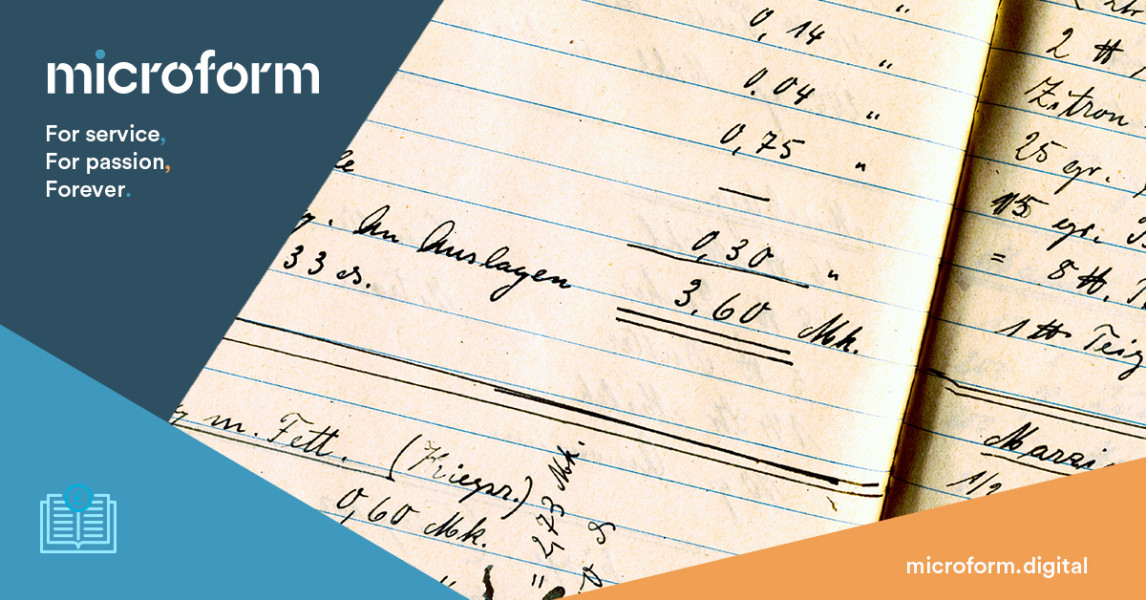 microform
For service,
For passion,
Forever.
0,14 "
0.04 "
0,75 "
—
0,30 "
An Auslagen
3.60 Mk.
33
m. Fett. (Kriegsr.)
0,60 Mk.
2,73 Mk.
2 ℔
Zitron
25 gr.
15 gr.
= 8 ℔.
1 ℔ Teig
1/2
microform.digital